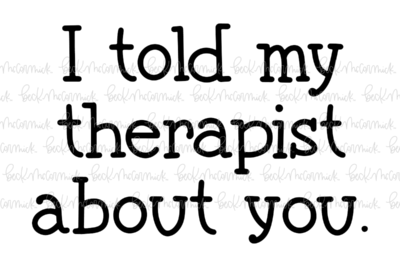 I told my
therapist
about you.